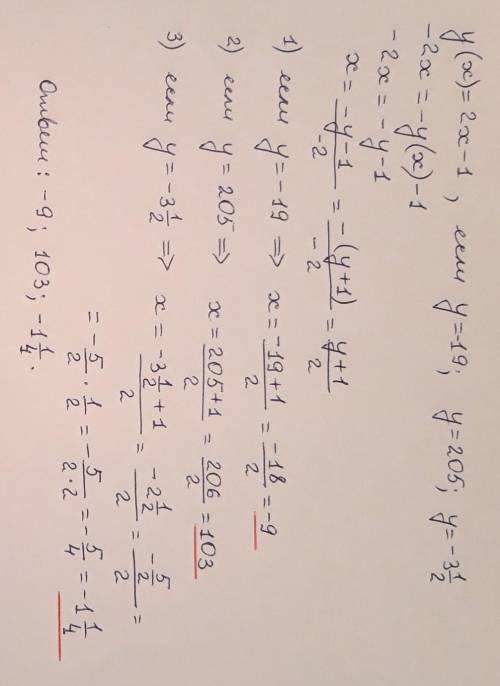 y(x) = 2x - 1, если y = -19; y = 205; y = -3 1/2
-2x = -y(x) - 1
-2x = -y - 1
x = (-y - 1)/(-2) = (-(y+1))/(-2) = (y+1)/2
1) если y = -19 => x = (-19+1)/2 = (-18)/2 = -9
2) если y = 205 => x = (205+1)/2 = 206/2 = 103
3) если y = -3 1/2 => x = (-3 1/2 + 1)/2 = (-2 1/2)/2 = (-5/2)/2 =
= -5/2 · 1/2 = -5/(2·2) = -5/4 = -1 1/4
Ответ: -9; 103; -1 1/4.